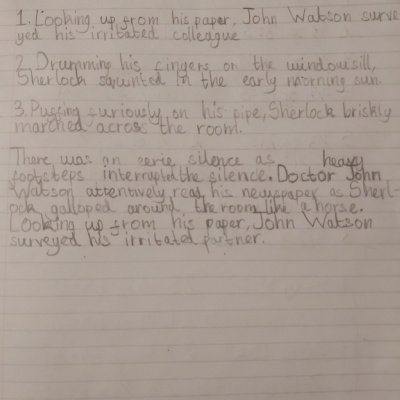 1. Looking up from his paper, John Watson surve
yed his irritated colleague
2. Drumming his fingers on the windowsill,
Sherlock squinted in the early morning sun.
3. Puffing furiously on his pipe, Sherlock briskly
marched across the room.
There was an eerie silence as heavy
footsteps interrupted the silence. Doctor John
Watson attentively read his newspaper as Sherl-
ock galloped around, the room like a horse.
Looking up from his paper, John Watson
surveyed his irritated partner.